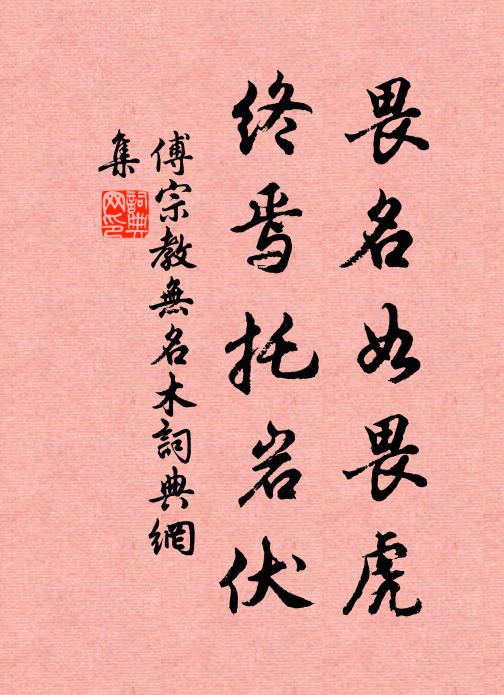 畏名如畏虎
终焉托岩伏
傅宗教無名木詞典網
集
詞典
网印